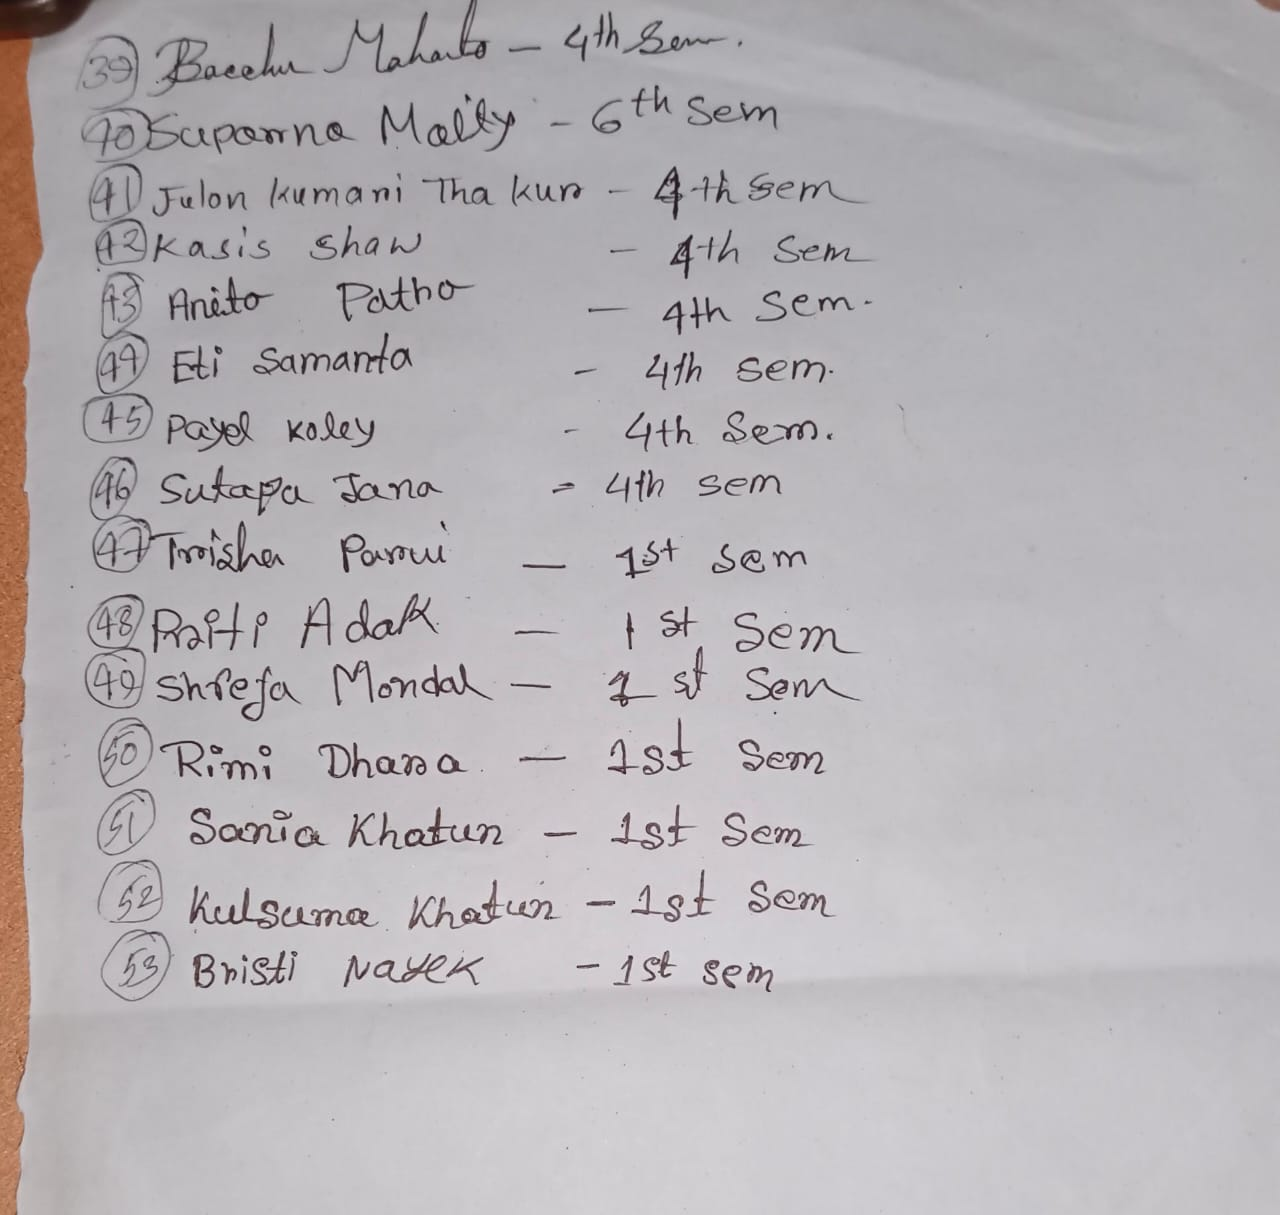 39 Bacchu Mahato - 4th Sem.
40 Suparna Maity - 6th Sem
41 Julon kumari Thakur - 4th Sem
42 Kasis Shaw - 4th Sem
43 Arito Patro - 4th Sem.
44 Eti Samanta - 4th Sem.
45 Payel Koley - 4th Sem.
46 Sutapa Jana - 4th sem
47 Trisha Parui - 1st Sem
48 Priti Adak - 1st Sem
49 Shreja Mondal - 1st Sem
50 Rimi Dhara - 1st Sem
51 Sania Khatun - 1st Sem
52 Kulsuma Khatun - 1st Sem
53 Bristi Nayek - 1st sem